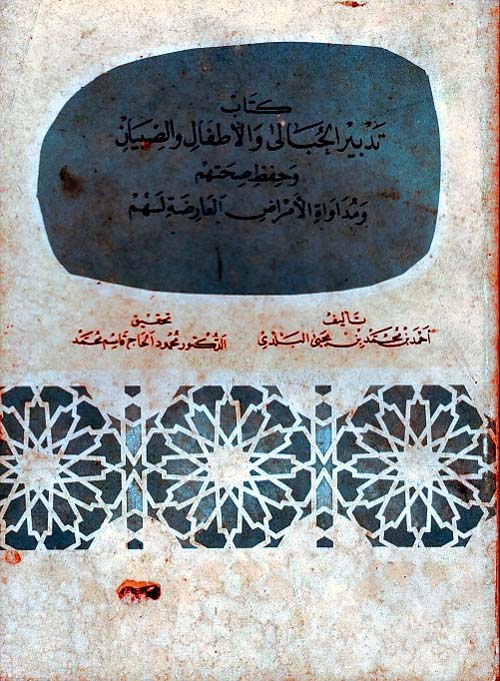 كتاب
تدبير الحبالى والأطفال والصبيان
وحفظ صحتهم
ومداواة الأمراض العارضة لهم
تأليف
أحمد بن محمد بن يحيى البلدي
تحقيق
الدكتور محمود الحاج قاسم محمد